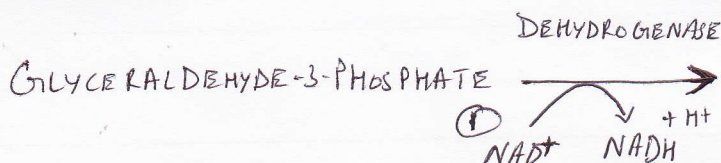 DEHYDROGENASE
GLYCERALDEHYDE-3-PHOSPHATE
NAD+ NADH + H+